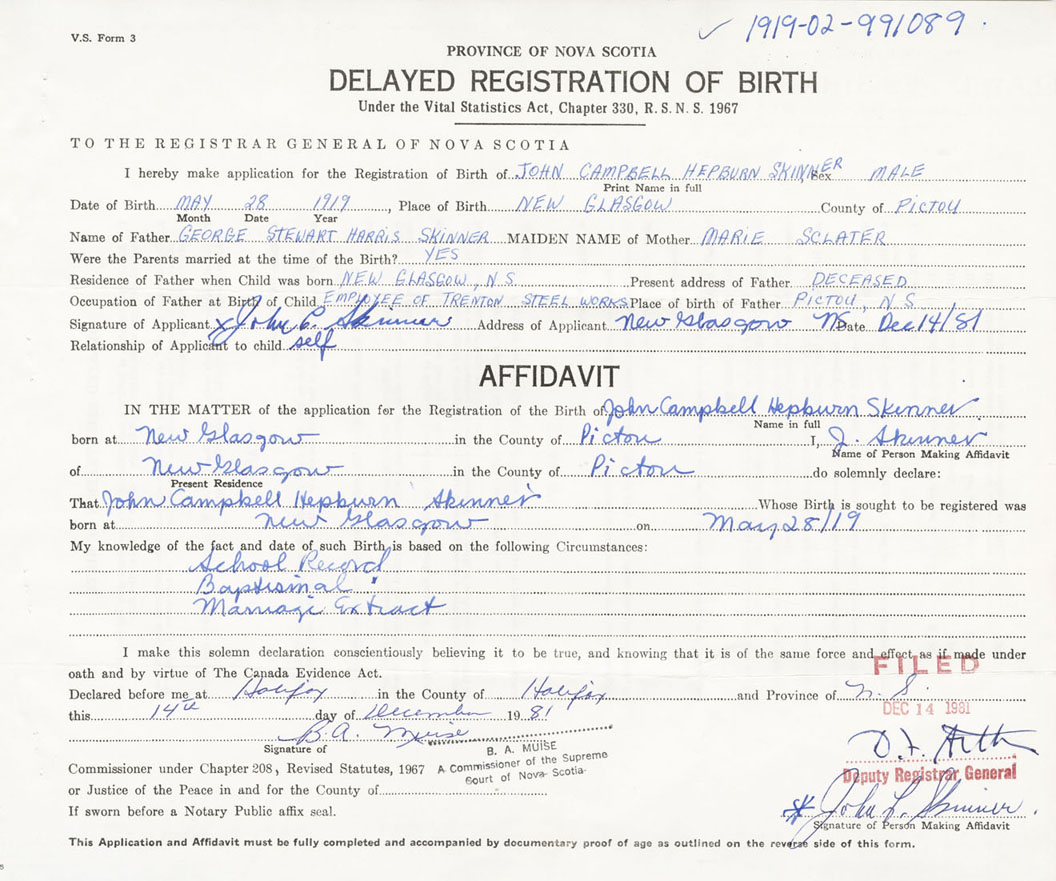 V.S. Form 3
✓ 1919-02-991089
PROVINCE OF NOVA SCOTIA
DELAYED REGISTRATION OF BIRTH
Under the Vital Statistics Act, Chapter 330, R.S.N.S. 1967
TO THE REGISTRAR GENERAL OF NOVA SCOTIA
I hereby make application for the Registration of Birth of JOHN CAMPBELL HEPBURN SKINNER Sex MALE
Print Name in full
Date of Birth MAY 28 1919, Place of Birth NEW GLASGOW County of PICTOU
Month Date Year
Name of Father GEORGE STEWART HARRIS SKINNER MAIDEN NAME of Mother MARIE SCLATER
Were the Parents married at the time of the Birth? YES
Residence of Father when Child was born NEW GLASGOW, N.S. Present address of Father DECEASED
Occupation of Father at Birth of Child EMPLOYEE OF TRENTON STEEL WORKS Place of birth of Father PICTOU, N.S.
Signature of Applicant x John C. Skinner Address of Applicant New Glasgow NS Date Dec 14/81
Relationship of Applicant to child self
AFFIDAVIT
IN THE MATTER of the application for the Registration of the Birth of John Campbell Hepburn Skinner
Name in full
born at New Glasgow in the County of Pictou I, J. Skinner
Name of Person Making Affidavit
of New Glasgow in the County of Pictou do solemnly declare:
Present Residence
That John Campbell Hepburn Skinner Whose Birth is sought to be registered was
born at New Glasgow on May 28/19
My knowledge of the fact and date of such Birth is based on the following Circumstances:
School Record
Baptismal "
Marriage Extract
I make this solemn declaration conscientiously believing it to be true, and knowing that it is of the same force and effect as if made under
oath and by virtue of The Canada Evidence Act.
FILED
Declared before me at Halifax in the County of Halifax and Province of N.S.
DEC 14 1981
this 14th day of December 1981
B.A. Muise
Signature of
B. A. MUISE
A Commissioner of the Supreme
Court of Nova Scotia
Commissioner under Chapter 208, Revised Statutes, 1967
Deputy Registrar General
or Justice of the Peace in and for the County of
If sworn before a Notary Public affix seal.
John C. Skinner
Signature of Person Making Affidavit
This Application and Affidavit must be fully completed and accompanied by documentary proof of age as outlined on the reverse side of this form.